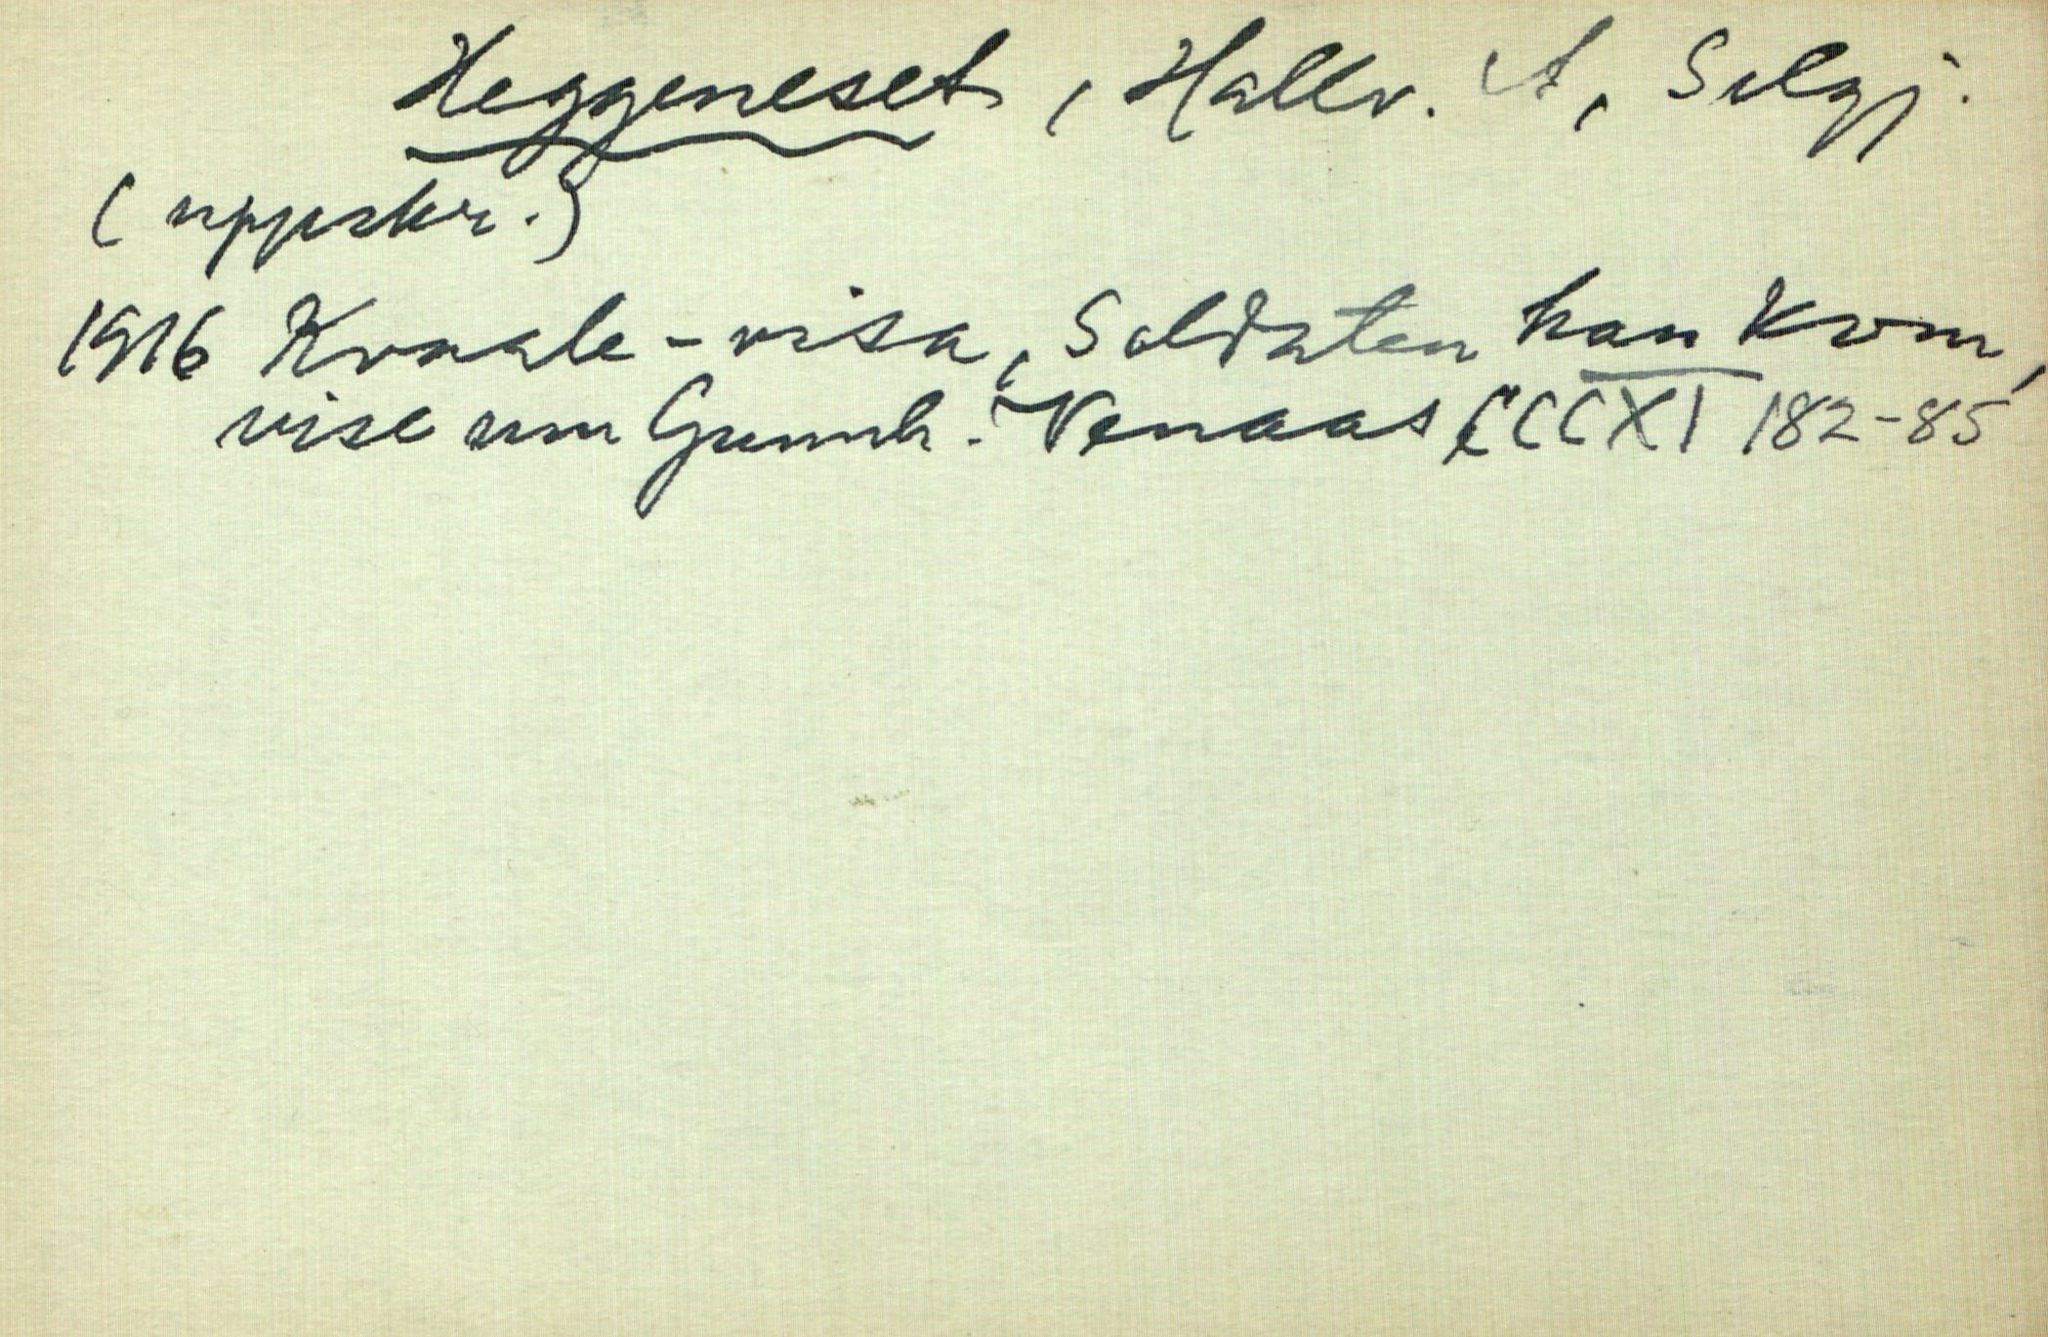 Heggeneset, Hallv. A, Selgj.
(uppskr.)
1916 Kvaale-visa, Soldaten han kom,
vise um Gunnh. Venaas CCCXI 182-85